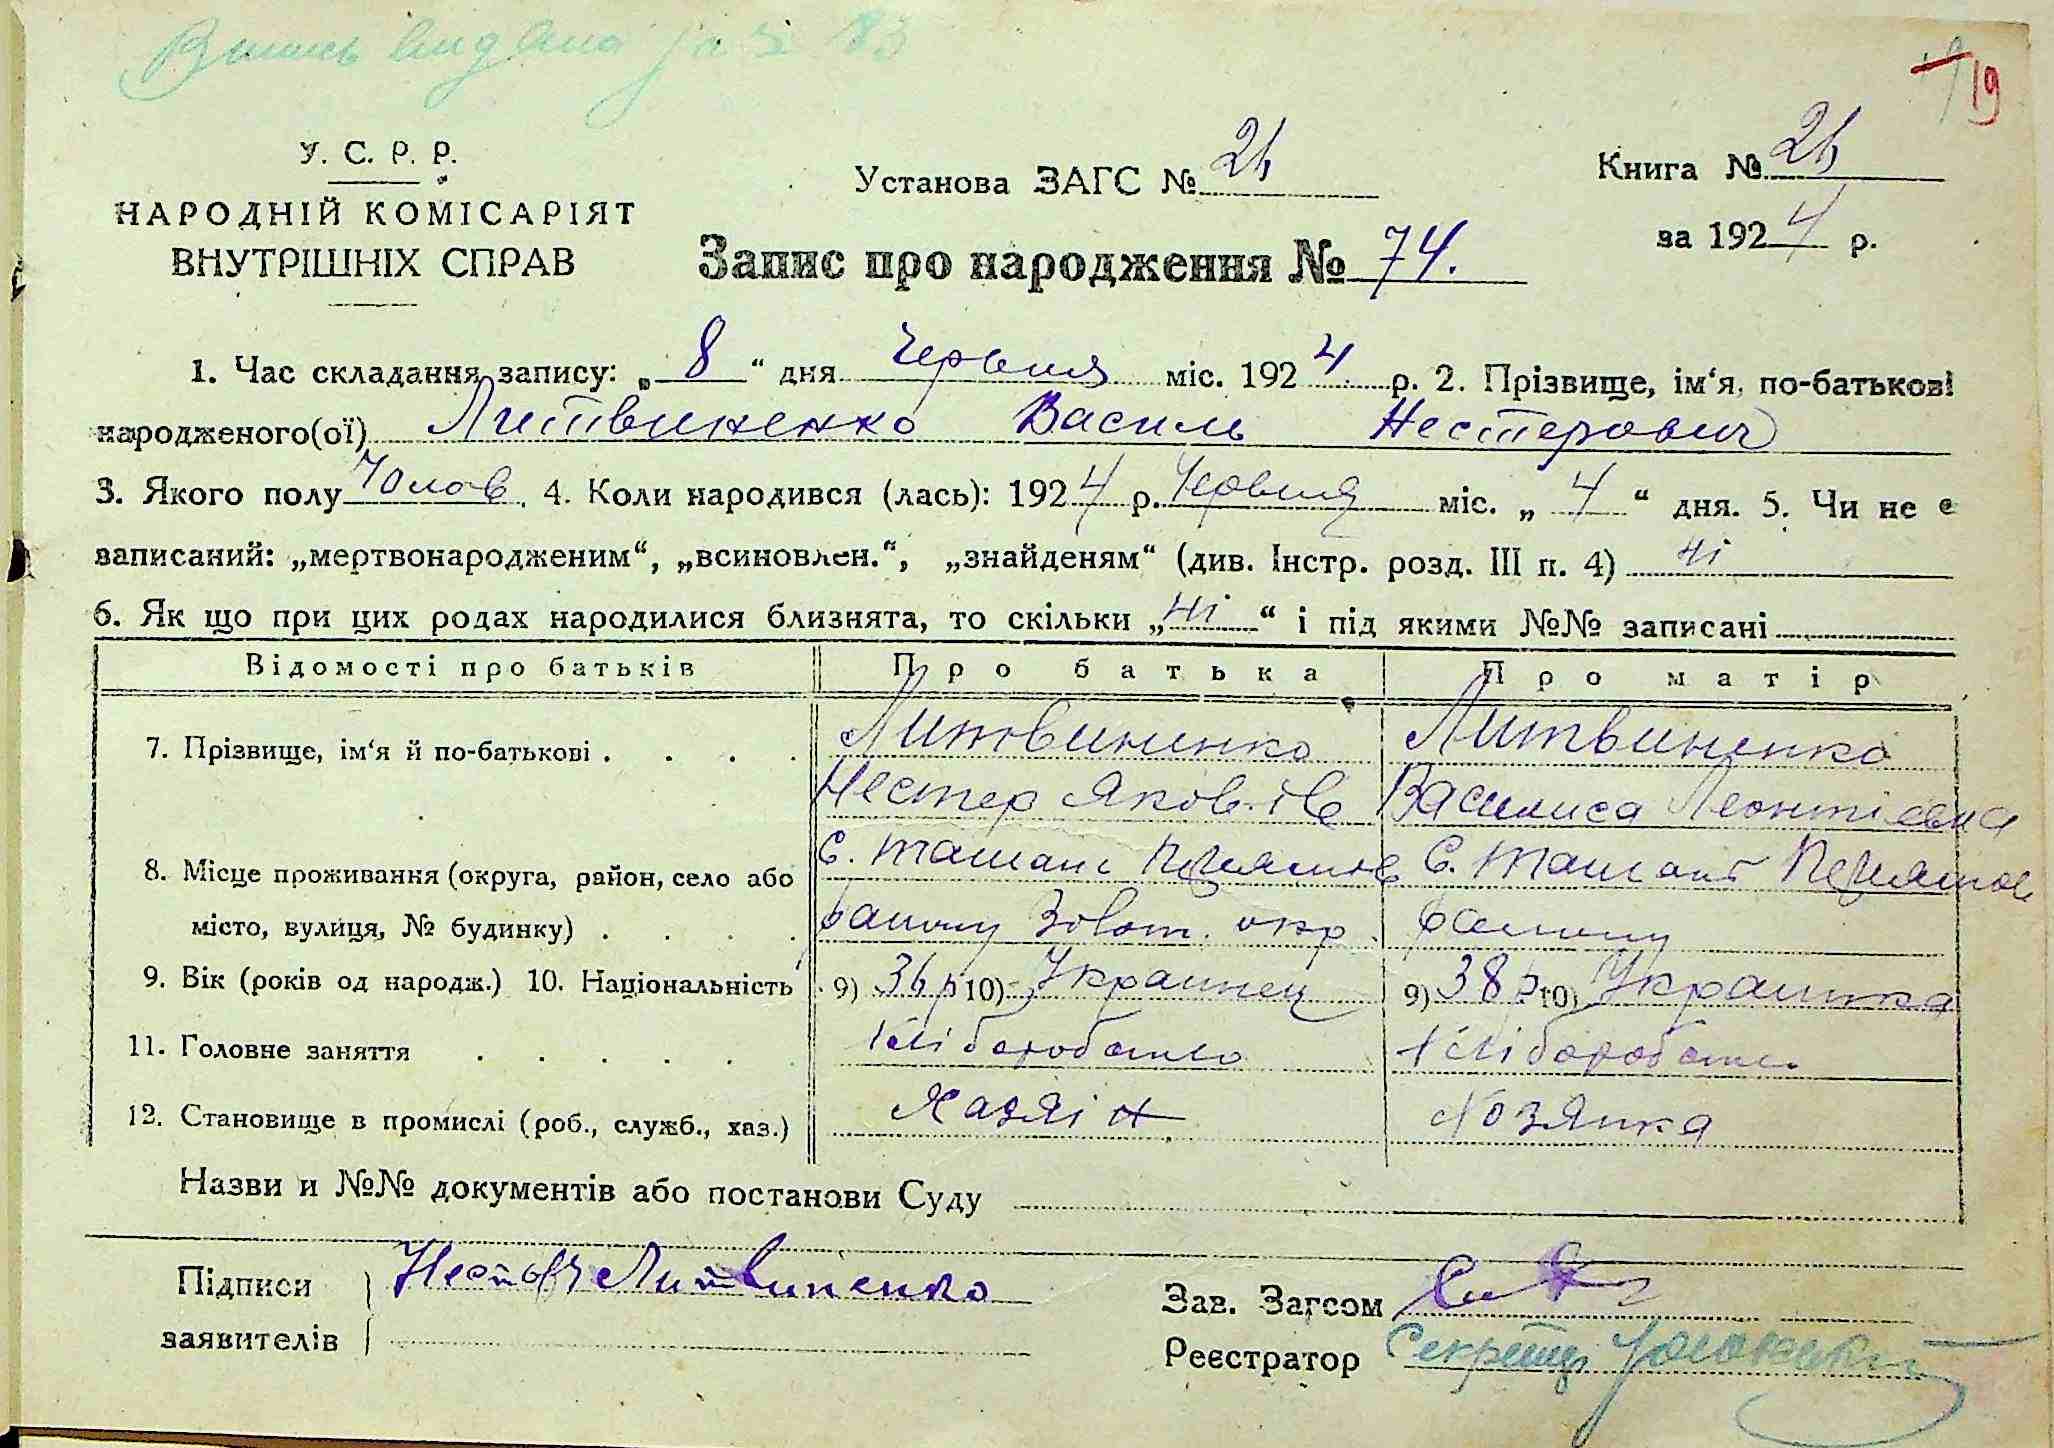 19
У. С. Р. Р.
НАРОДНІЙ КОМІСАРІЯТ
ВНУТРІШНІХ СПРАВ
Установа ЗАГС №
Книга №
за 1924 р.
Запис про народження № 74.
1. Час складання запису: „8“ дня Червня міс. 1924 р. 2. Прізвище, ім‘я, по-батькові
народженого(ої) Литвиненко Василь Нестерович
3. Якого полу Чолов. 4. Коли народився (лась): 1924 р. Червня міс. „4“ дня. 5. Чи не є
записаний: „мертвонародженим“, „всиновлен.“, „знайденям“ (див. Інстр. розд. III п. 4) Ні
6. Як що при цих родах народилися близнята, то скільки „Ні“ і під якими №№ записані
Відомості про батьків Про батька Про матір
7. Прізвище, ім‘я й по-батькові . . . . Литовиненко Литвиненко
Нестер Яковів Василиса Леонтіевна
8. Місце проживання (округа, район, село або С. Ташань С. Ташань
місто, вулиця, № будинку) . . . . району Золот. окр. району
9. Вік (років од народж.) 10. Національність 9) 36 р 10) Украинец 9) 38 р 10) Украинка
11. Головне заняття . . . . . Хліборобство
12. Становище в промислі (роб., служб., хаз.) Хазяін Хозяйка
Назви и №№ документів або постанови Суду
Підписи Нестор Литвиненко
заявителів
Зав. Загсом
Реєстратор Секретар